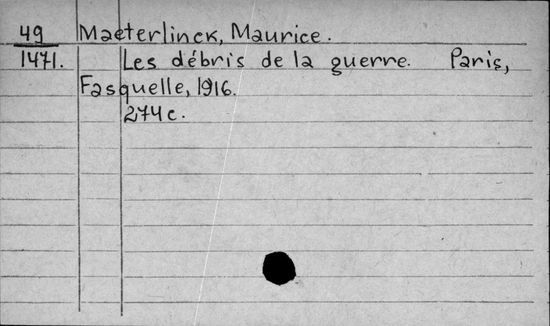 49 Maeterlinck, Maurice.
1471. Les débris de la guerre. Paris,
Fasquelle, 1916.
274 c.